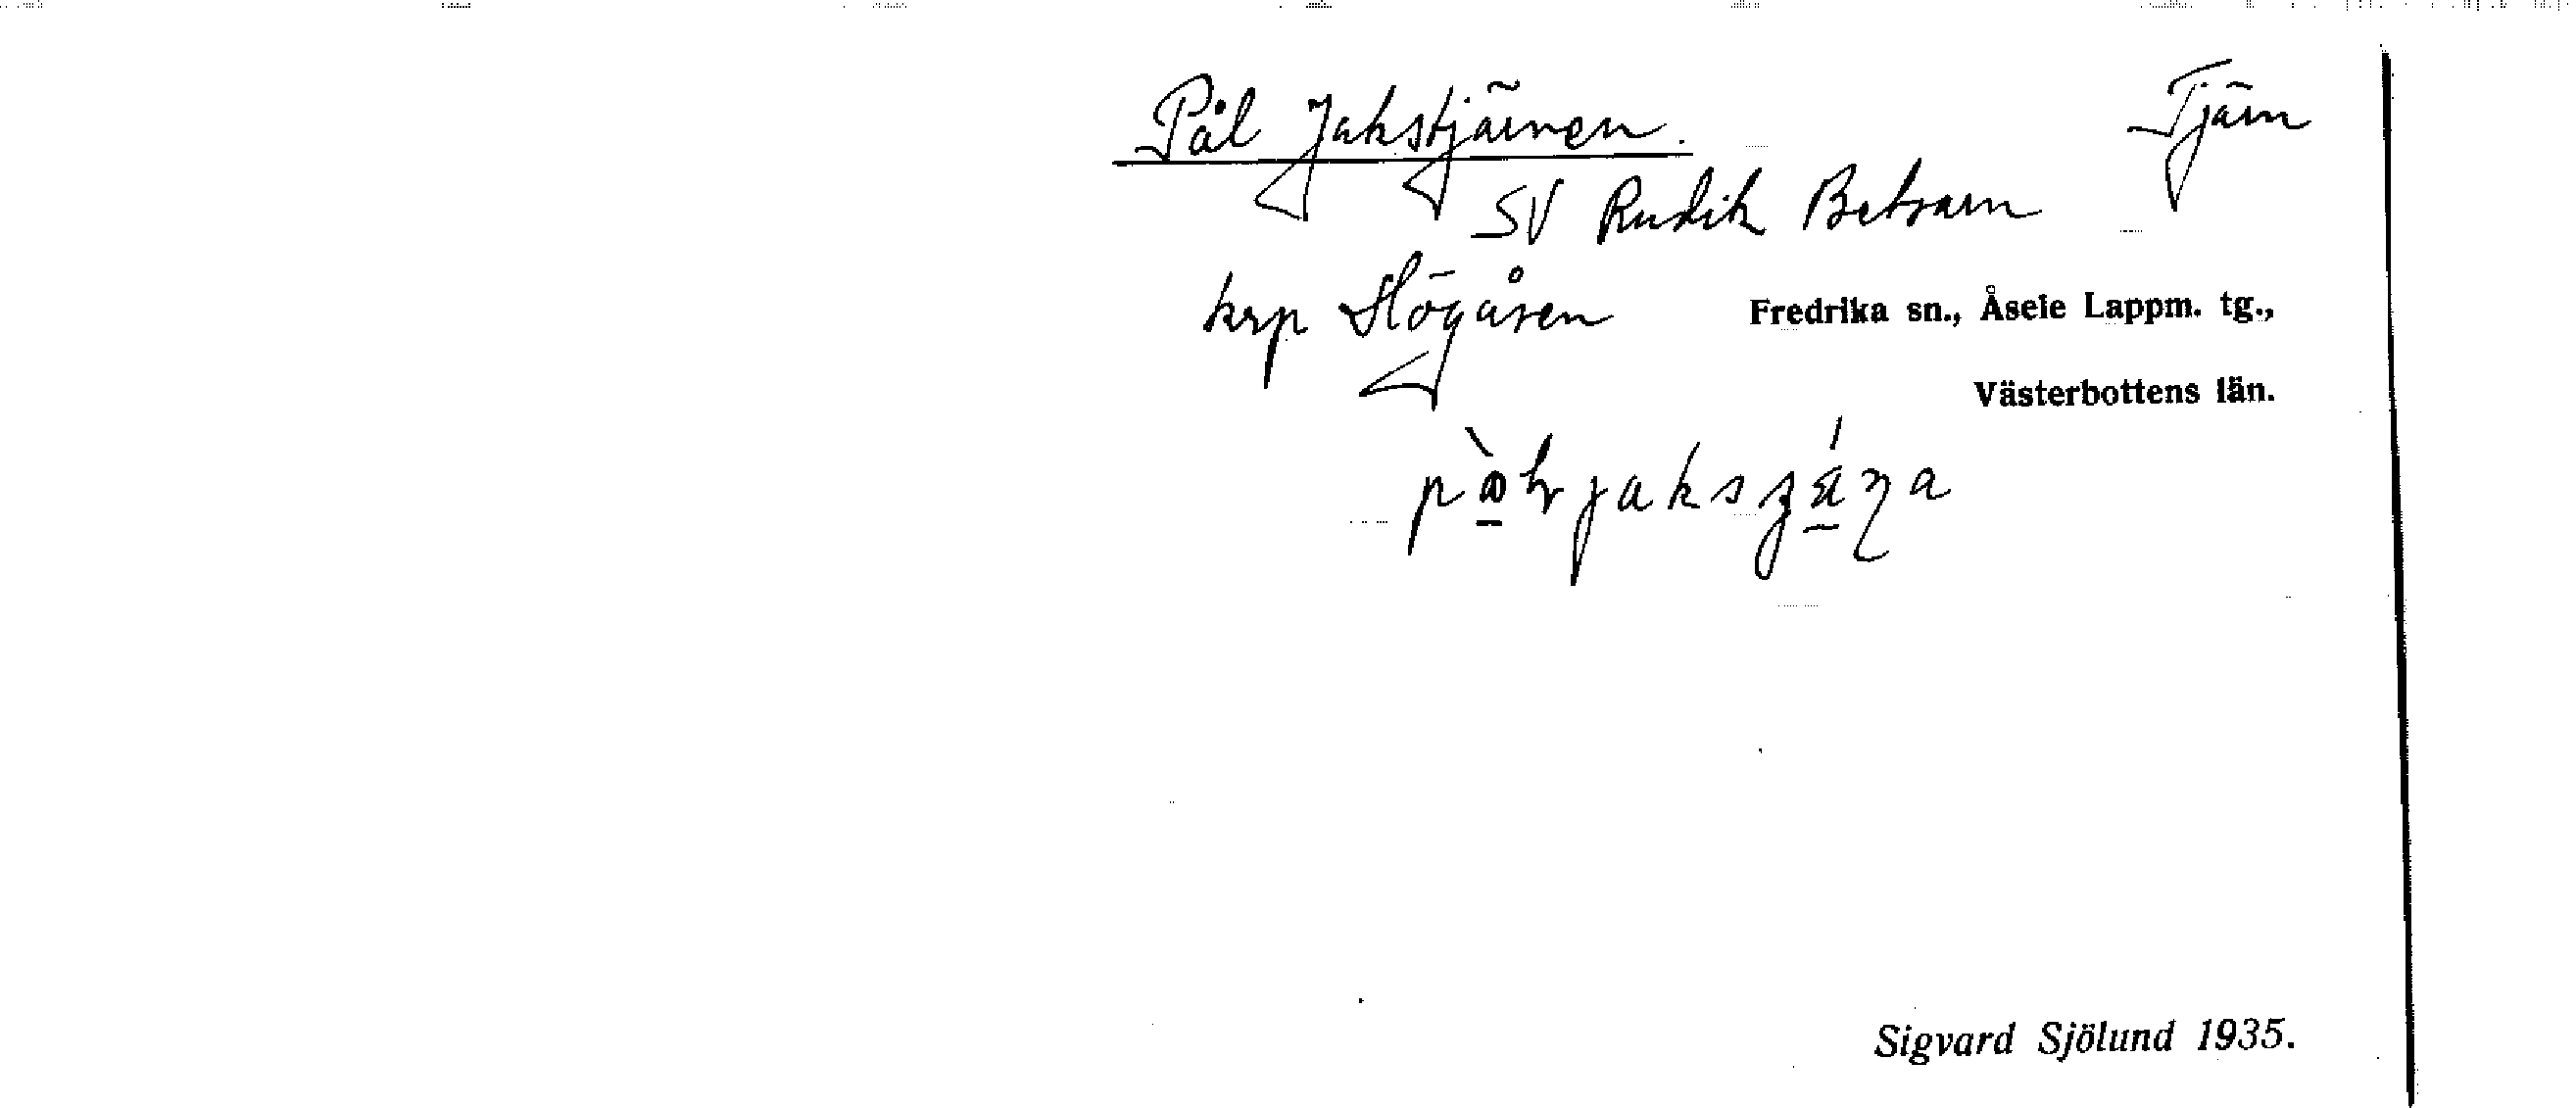 Pål Jakstjärnen.
Tjärn
SV Rudik Betsarn
krp Högåsen
Fredrika sn., Åsele Lappm. tg.,
Västerbottens län.
Sigvard Sjölund 1935.